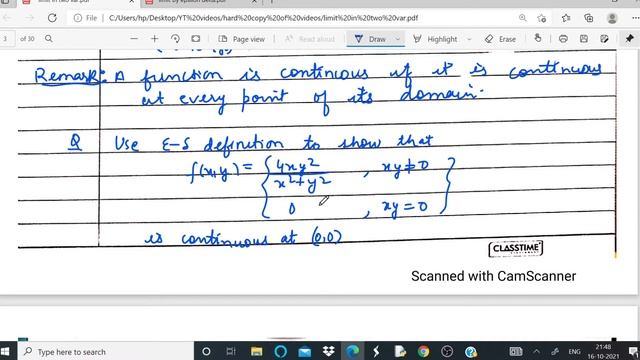 limit in two var.pdf
limit by epsilon delta.pdf
C:/Users/hp/Desktop/YT%20videos/hard%20copy%20of%20videos/limit%20in%20two%20var.pdf
3 of 30 Draw Read aloud
Remark: A function is continuous if it is continuous
at every point of its domain.
Q Use ε-δ definition to show that
f(x,y) = { 4xy²/x²+y² , xy≠0
0 , xy=0 }
is continuous at (0,0)
CLASSTIME
Scanned with CamScanner
Type here to search
ENG
21:48
16-10-2021